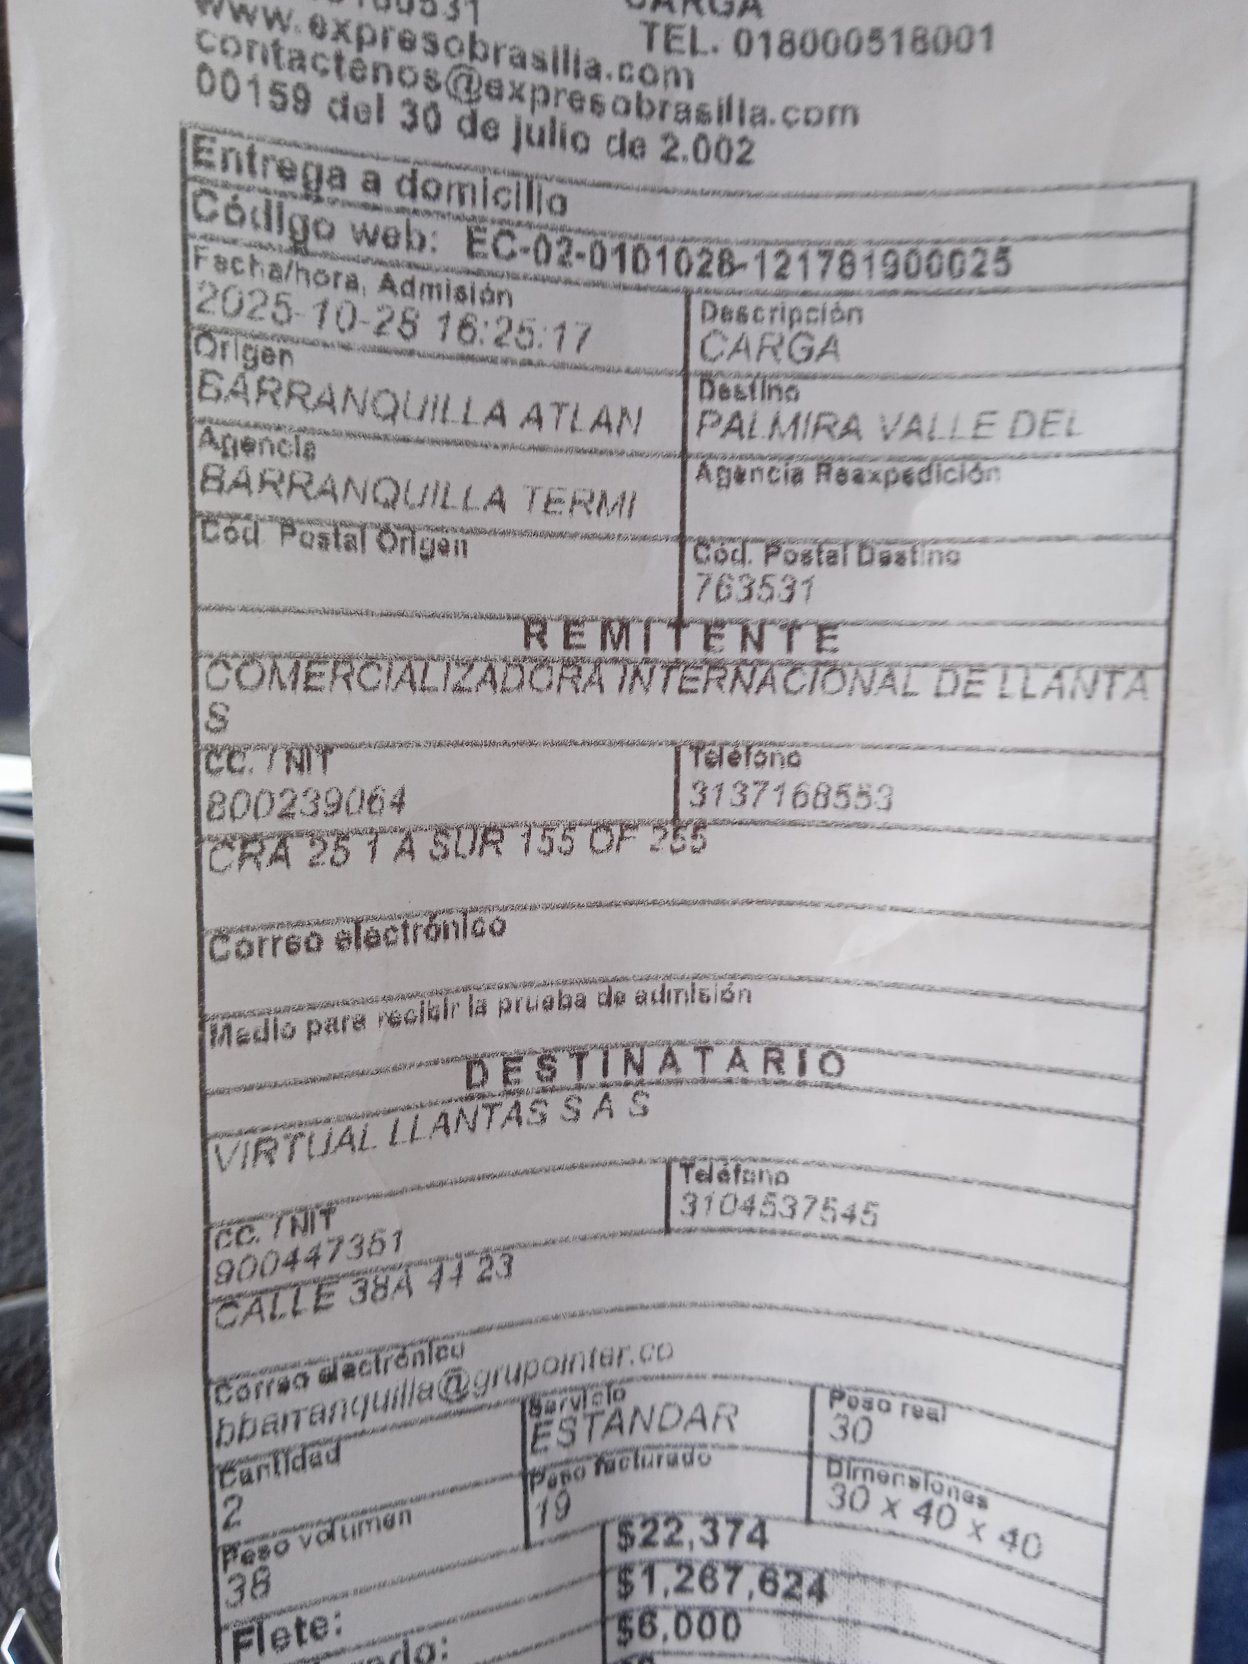 CARGA
www.expresobrasilia.com
TEL. 018000518001
contactenos@expresobrasilia.com
00159 del 30 de julio de 2.002
Entrega a domicilio
Código web: EC-02-0101028-121781900025
Fecha/hora, Admisión
2025-10-28 16:25:17
Descripción
CARGA
Origen
BARRANQUILLA ATLAN
Destino
PALMIRA VALLE DEL
Agencia
BARRANQUILLA TERMI
Agencia Reexpedición
Cód. Postal Origen
Cód. Postal Destino
763531
REMITENTE
COMERCIALIZADORA INTERNACIONAL DE LLANTA
S
CC. / NIT
800239064
Teléfono
3137168553
CRA 25 1 A SUR 155 OF 255
Correo electrónico
Medio para recibir la prueba de admisión
DESTINATARIO
VIRTUAL LLANTAS S A S
CC. / NIT
900447351
Teléfono
3104537545
CALLE 38A 44 23
Correo electrónico
bbarranquilla@grupointer.co
Cantidad
2
Servicio
ESTANDAR
Peso real
30
Peso volumen
38
Peso facturado
19
Dimensiones
30 x 40 x 40
Flete:
$22,374
$1,267,624
$6,000